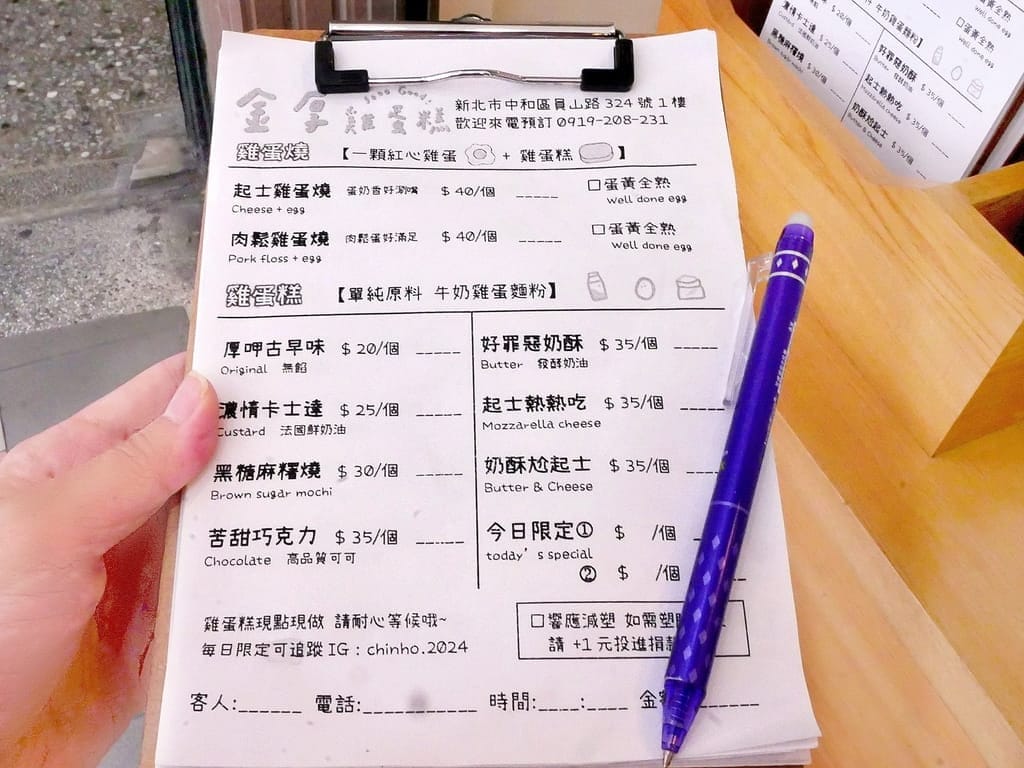 金厚雞蛋糕
Good!
新北市中和區員山路 324 號 1 樓
歡迎來電預訂 0919-208-231
雞蛋燒 【一顆紅心雞蛋 + 雞蛋糕 】
起士雞蛋燒 蛋奶香好涮嘴 $ 40/個 _____ □蛋黃全熟
Cheese + egg Well done egg
肉鬆雞蛋燒 肉鬆蛋好滿足 $ 40/個 _____ □蛋黃全熟
Pork floss + egg Well done egg
雞蛋糕 【單純原料 牛奶雞蛋麵粉】
厚呷古早味 $ 20/個 _____
Original 無餡
濃情卡士達 $ 25/個 _____
Custard 法國鮮奶油
黑糖麻糬燒 $ 30/個 _____
Brown sugar mochi
苦甜巧克力 $ 35/個 _____
Chocolate 高品質可可
好罪惡奶酥 $ 35/個 _____
Butter 發酵奶油
起士熱熱吃 $ 35/個 _____
Mozzarella cheese
奶酥尬起士 $ 35/個
Butter & Cheese
今日限定① $ /個
today's special
② $ /個
雞蛋糕現點現做 請耐心等候哦~
每日限定可追蹤 IG : chinho.2024
□響應減塑 如需塑
請 +1 元投進捐
客人:______ 電話:__________ 時間:____:____ 金
蛋黃全熟
Well done egg
□蛋黃全熟
Well done egg
情卡士達 $ 25/個
黑糖麻糬燒 $ 30/個
牛奶雞蛋麵粉】
好罪惡奶酥 $ 35/個
起士熱熱吃 $ 35/個
Mozzarella cheese
奶酥尬起士 $ 35/個
Butter & Cheese